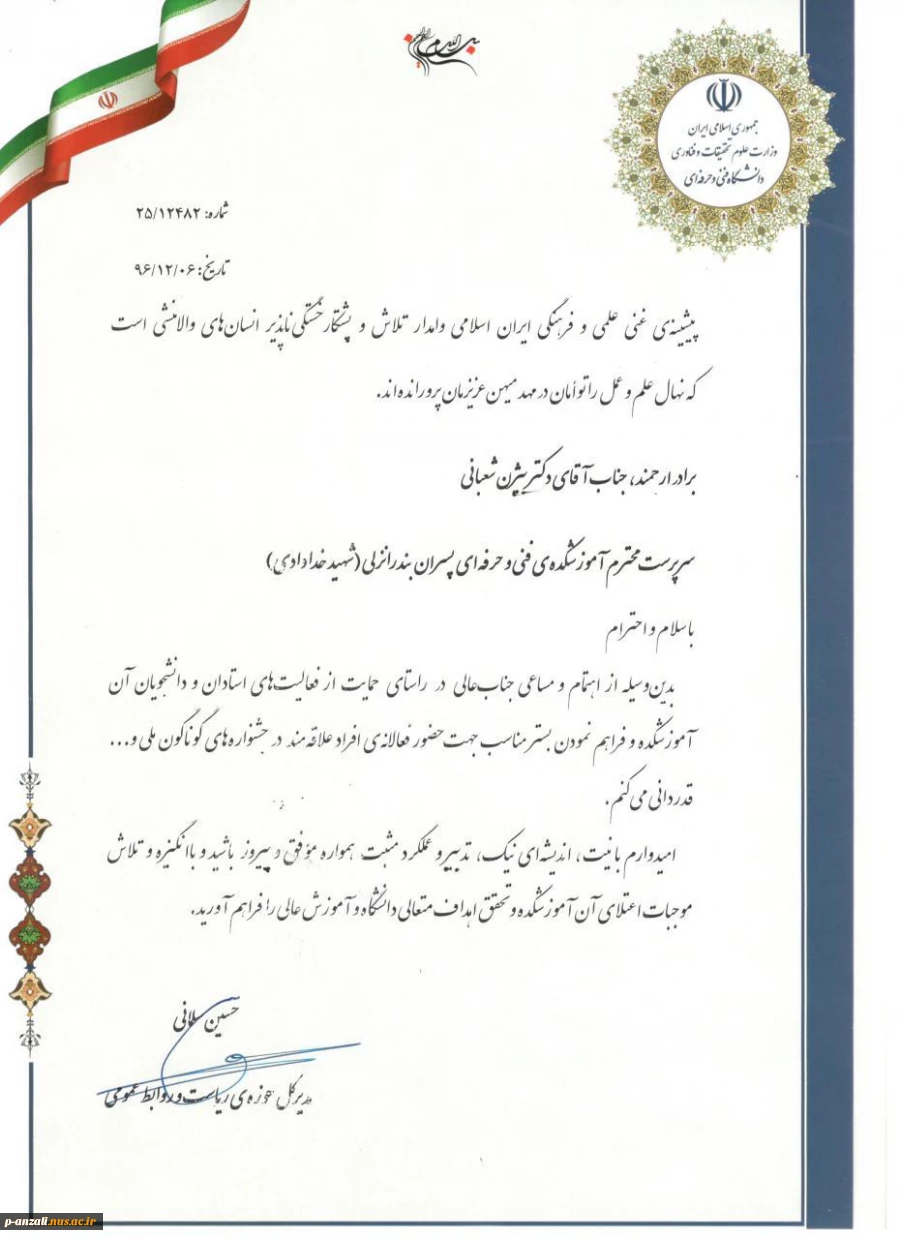 بسم الله الرحمن الرحیم
جمهوری اسلامی ایران
وزارت علوم تحقیقات و فناوری
دانشگاه فنی و حرفه‌ای
شماره: ۲۵/۱۲۴۸۲
تاریخ: ۹۶/۱۲/۰۶
پیشینه‌ی غنی علمی و فرهنگی ایران اسلامی وامدار تلاش و پشتکار خستگی‌ناپذیر انسان‌های والامنشی است
که نهال علم و عمل را توأمان در مهد میهن عزیزمان پرورانده‌اند.
برادر ارجمند، جناب آقای دکتر بیژن شعبانی
سرپرست محترم آموزشکده‌ی فنی و حرفه‌ای پسران بندرانزلی (شهید خدادادی)
با سلام و احترام
بدین‌وسیله از اهتمام و مساعی جناب‌عالی در راستای حمایت از فعالیت‌های استادان و دانشجویان آن
آموزشکده و فراهم نمودن بستر مناسب جهت حضور فعالانه‌ی افراد علاقه‌مند در جشنواره‌های گوناگون ملی و...
قدردانی می‌کنم.
امیدوارم با نیت، اندیشه‌ای نیک، تدبیر و عملکرد مثبت همواره موفق و پیروز باشید و با انگیزه و تلاش
موجبات اعتلای آن آموزشکده و تحقق اهداف متعالی دانشگاه و آموزش عالی را فراهم آورید.
حسین
مدیرکل حوزه‌ی ریاست و روابط عمومی
p-anzali.nus.ac.ir